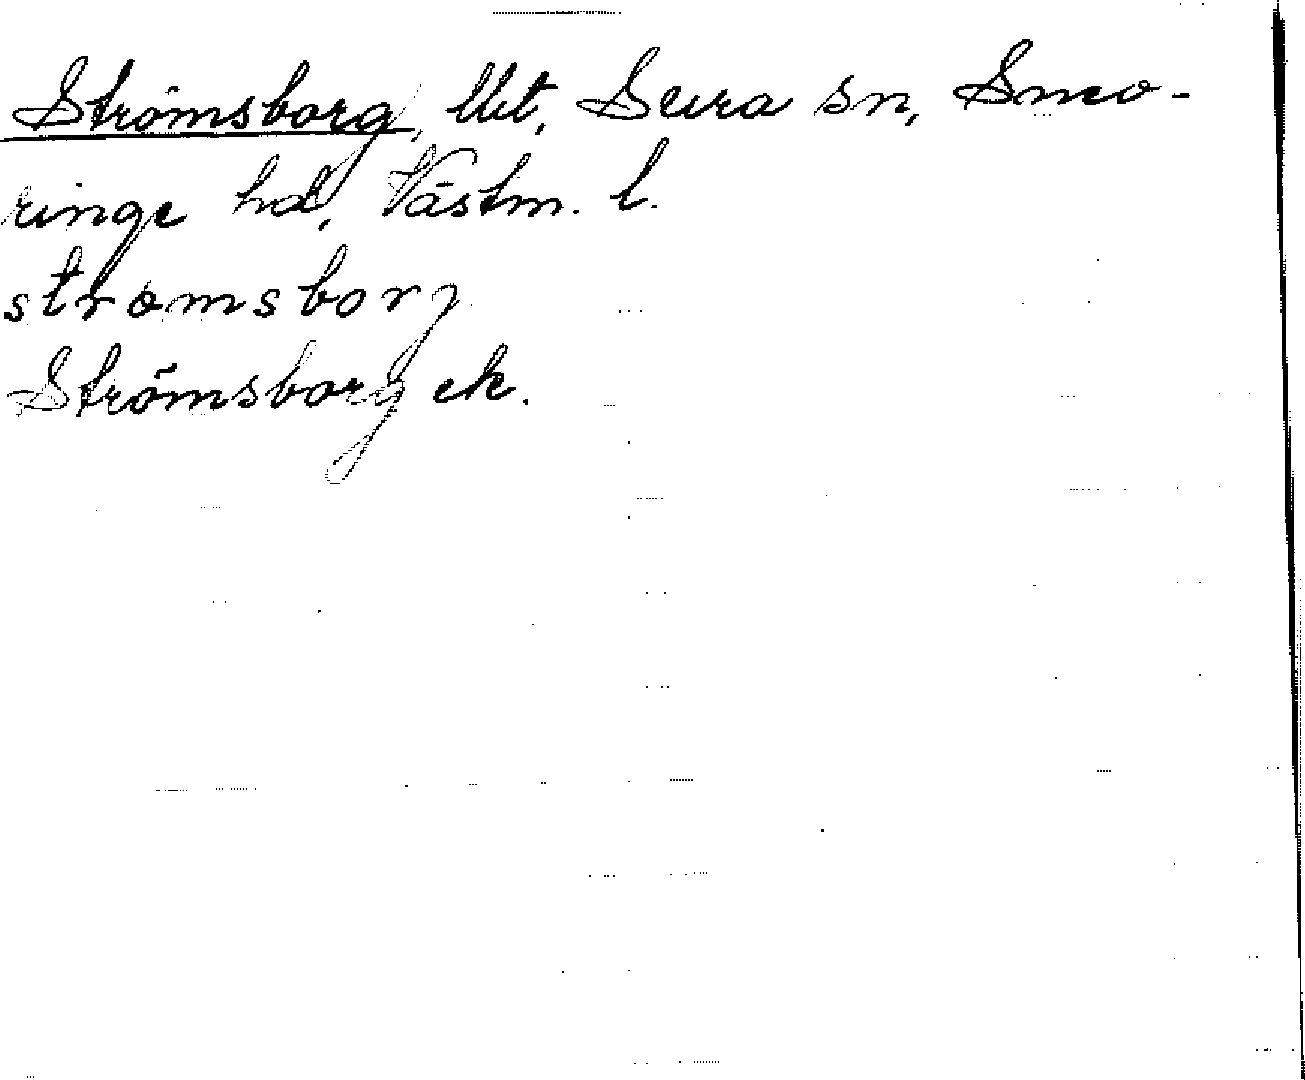 Strömsborg, lht, Sura sn, Snevringe hd, Västm. l.
strømsborj
Strömsborg ek.